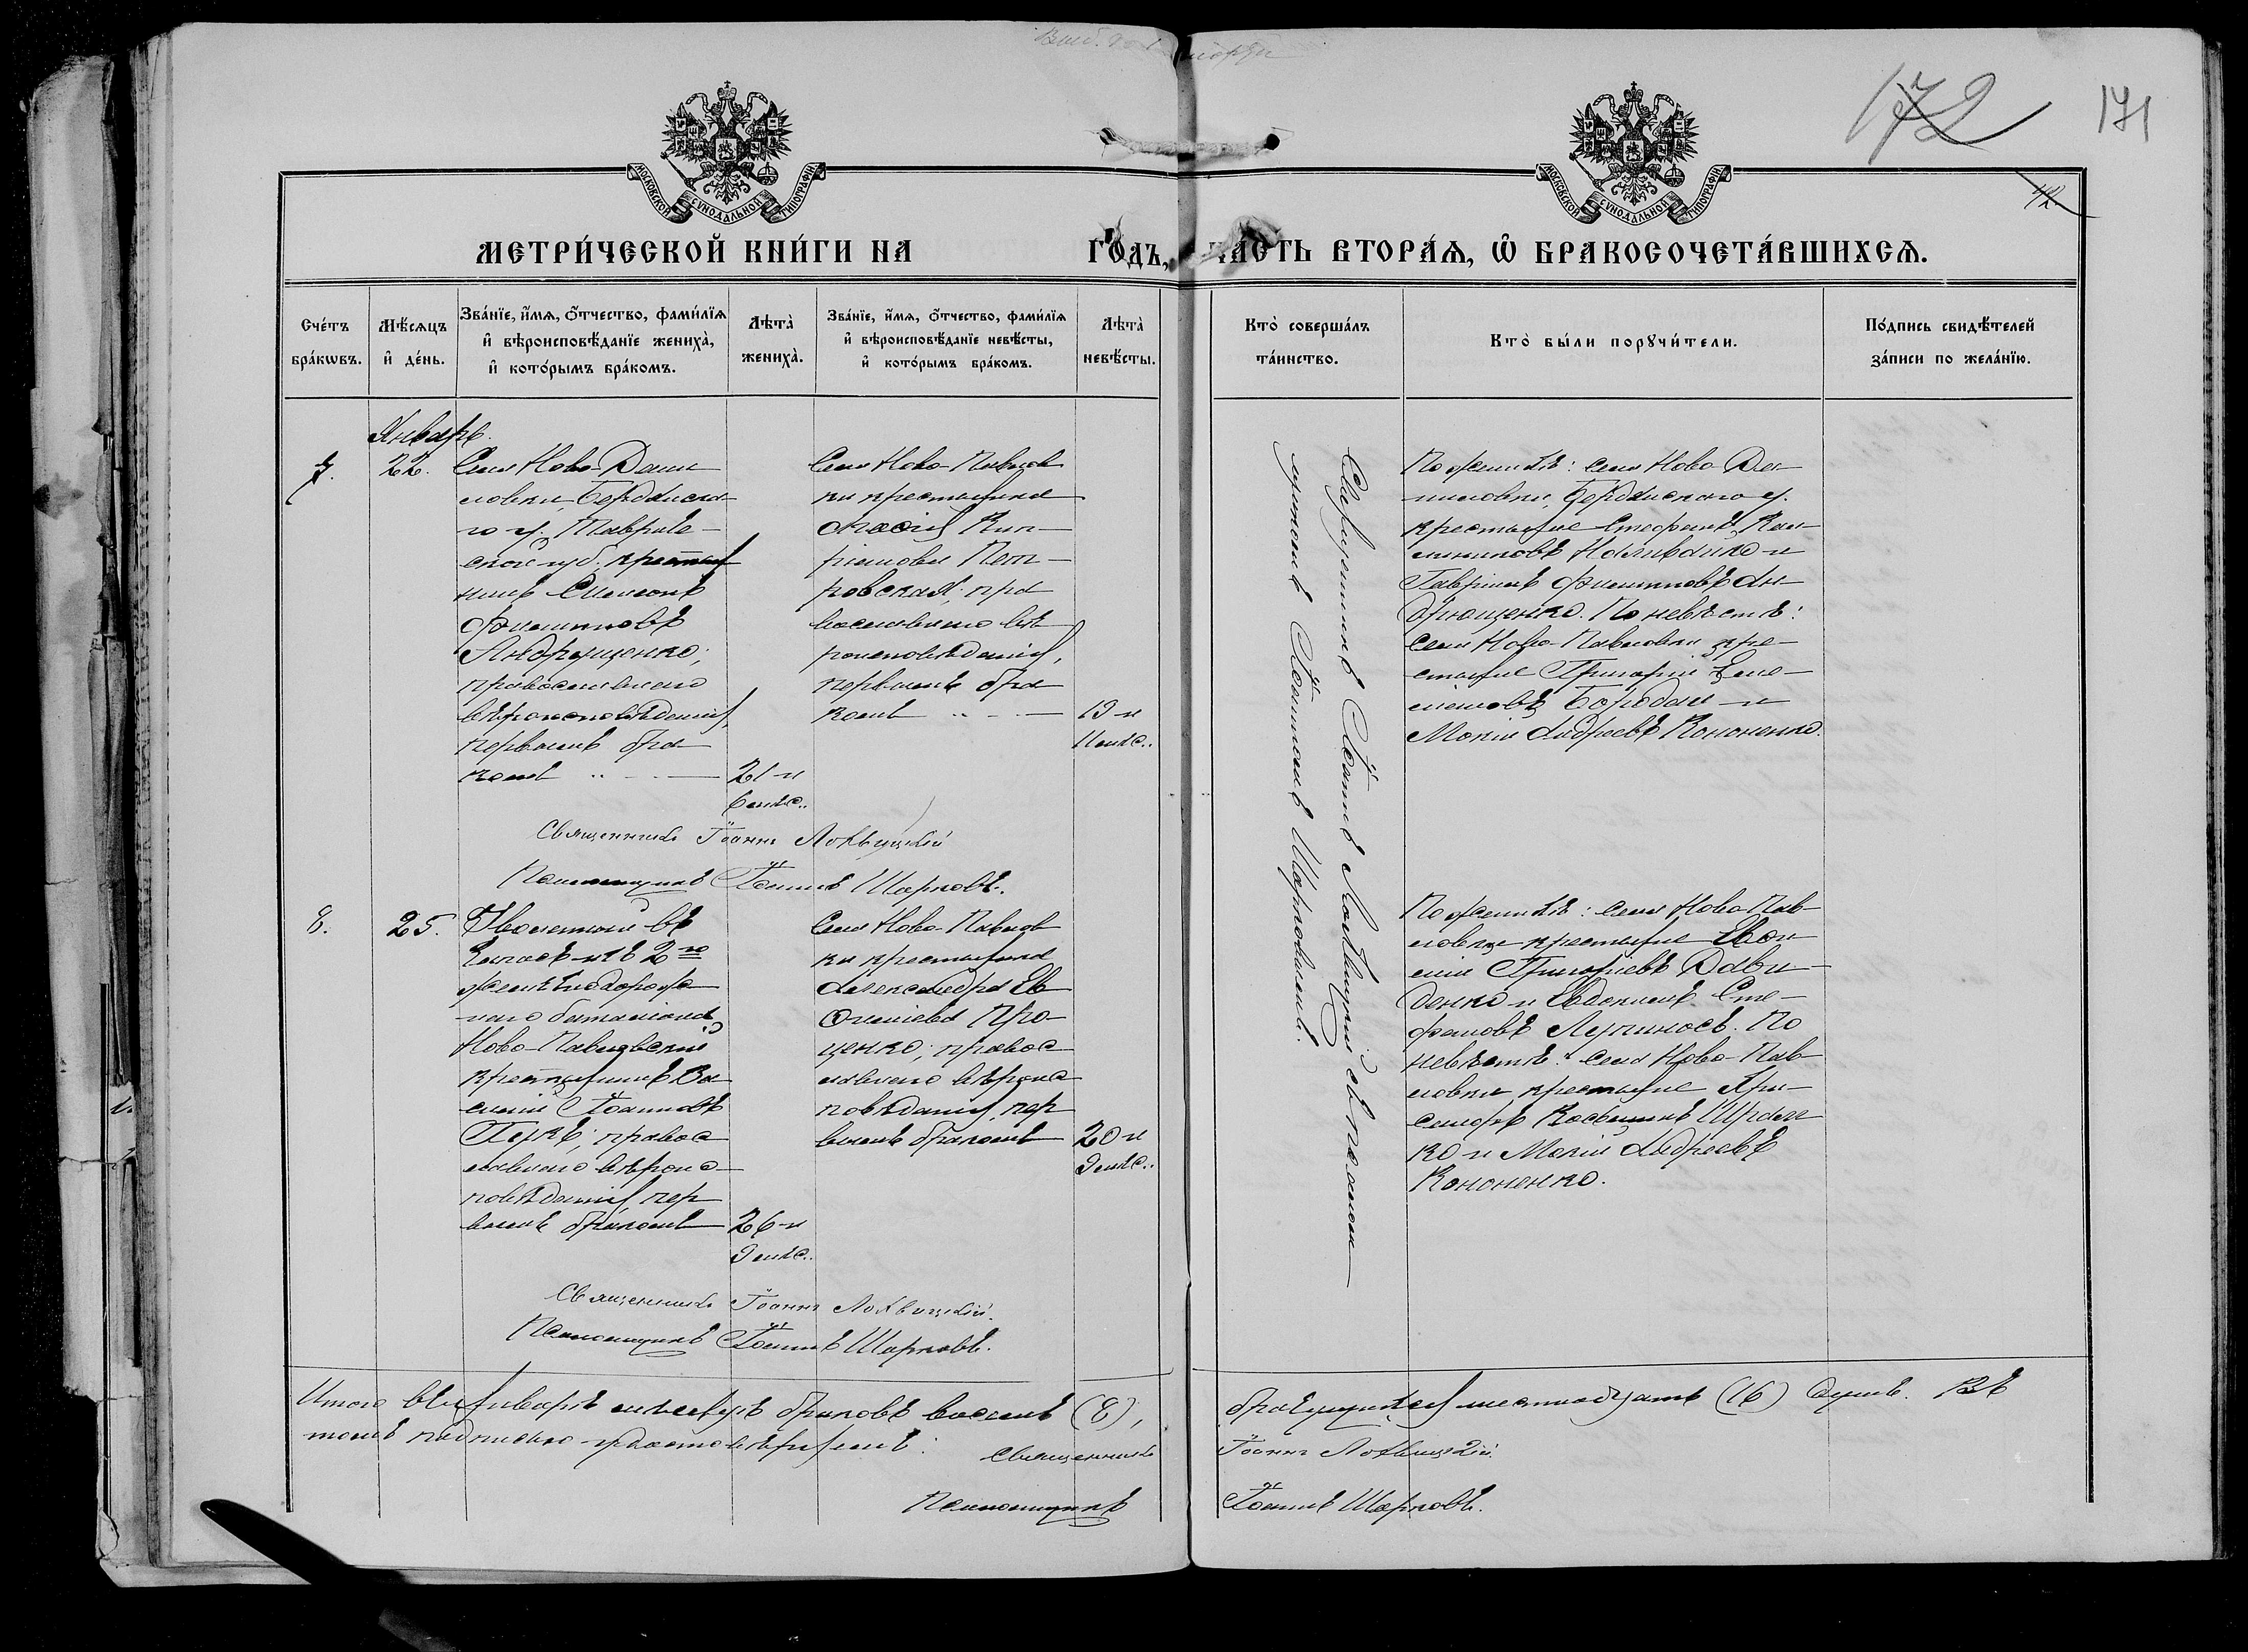 172
171
42
МОСКОВСКОЙ СУНОДАЛЬНОЙ ТИПОГРАФІИ
МОСКОВСКОЙ СУНОДАЛЬНОЙ ТИПОГРАФІИ
МЕТРИ́ЧЕСКОЙ КНИ́ГИ НА ГО́ДЪ, ЧА́СТЬ ВТОРА́Ѧ, Ѽ БРАКОСОЧЕТА́ВШИХСѦ.
Сче́тъ бра́кѡвъ.
Мѣ́сяцъ и҆ де́нь.
Зва́нїе, и҆́мѧ, ѻ҆́тчество, фами́лїѧ и҆ вѣроисповѣ́данїе жениха̀, и҆ кото́рымъ бра́комъ.
Лѣта̀ жениха̀.
Зва́нїе, и҆́мѧ, ѻ҆́тчество, фами́лїѧ и҆ вѣроисповѣ́данїе невѣ́сты, и҆ кото́рымъ бра́комъ.
Лѣта̀ невѣ́сты.
Кто̀ соверша́лъ та́инство.
Кто̀ бы́ли порꙋчи́тели.
По́дпись свидѣ́телей за́писи по жела́нїю.
Январь.
7.
22.
Села Ново-Дани
ловки, Бердянска
го у. Тавриче-
ской губ. крестья
нинъ Симеонъ
Филипповъ
Андрущенко;
православнаго
вѣроисповѣданія,
первымъ бра
комъ
21 и
6 мѣс.
Села Ново-Павлов
ки крестьянка
Кип-
ріанова Пет-
ровская; пра
вославнаго вѣ
роисповѣданія,
первымъ бра
комъ
19 и
11 мѣс.
Священникъ Іоаннъ Лохвицкій съ псалом
щикомъ Іоанномъ Шарковымъ.
По женихѣ: села Ново-Да-
ниловки, Бердянскаго у.
крестьяне Стефанъ Кал-
линиковъ Наливайко и
Гавріилъ Филипповъ Ан
дрющенко. По невѣстѣ:
села Ново-Павловки кре-
стьяне Григорій
Бородай и
Мокій Андреевъ Кононенко.
Священникъ Іоаннъ Лохвицкій
Псаломщикъ Іоаннъ Шарковъ.
8.
25.
Уволенный въ
запасъ изъ 2го
желѣзнодорож
наго баталіона
Ново-Павловскій
крестьянинъ Ва
силій Іоанновъ
Гужъ; правос
лавнаго вѣроис
повѣданія, пер
вымъ бракомъ
26 и
9 мѣс.
Села Ново-Павлов
ки крестьянка
Александра Ев
ѳиміева Про-
ценко; правос
лавнаго вѣроис
повѣданія, пер
вымъ бракомъ
20 и
9 мѣс.
По женихѣ: села Ново-Пав-
ловки крестьяне Евѳи
мій Григорьевъ Дави-
денко и Евдокимъ Сте-
фановъ Лупиносъ. По
невѣстѣ: села Ново-Пав
ловки крестьяне Хри-
санфъ Косьминъ Шрам
ко и Мокій Андреевъ
Кононенко.
Священникъ Іоаннъ Лохвицкій.
Псаломщикъ Іоаннъ Шарковъ.
Итого въ Январѣ мѣсяцѣ браковъ восемь (8), брачущихся шестнадцать (16) душъ. Въ
томъ подписью удостовѣряемъ: Священникъ Іоаннъ Лохвицкій.
Псаломщикъ Іоаннъ Шарковъ.